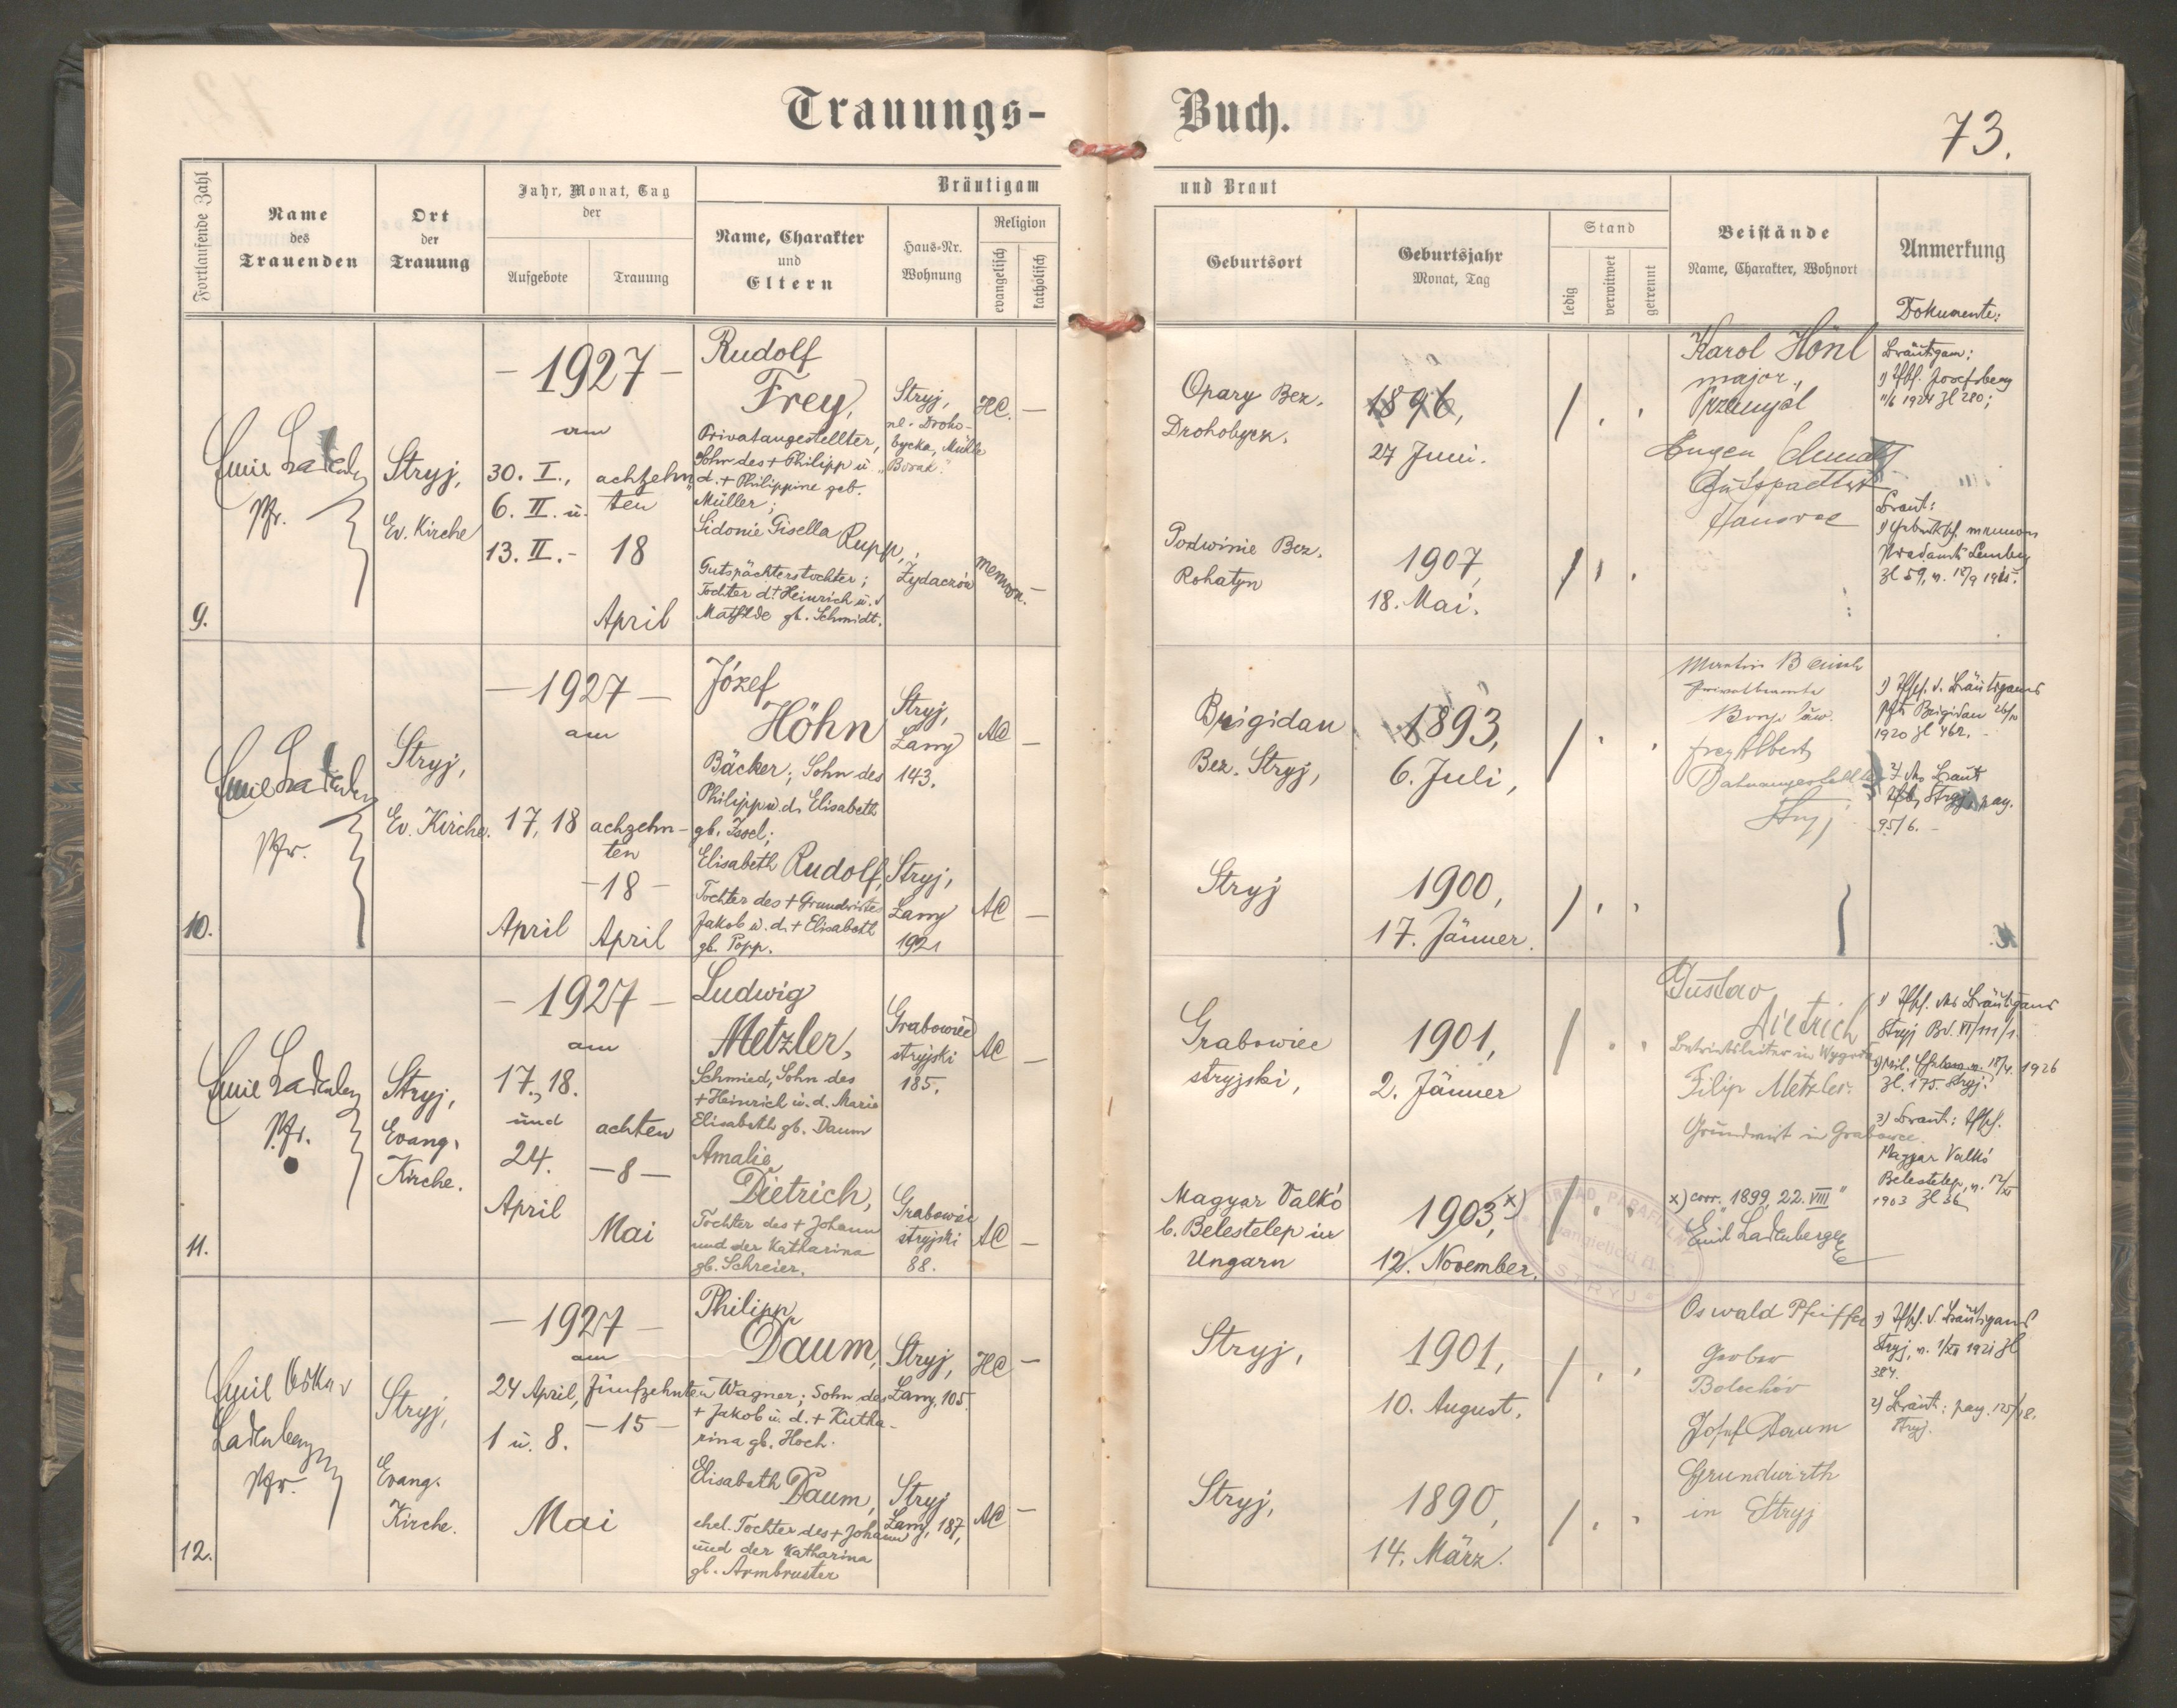 Trauungs- Buch.
73.
Fortlaufende Zahl
Name des Trauenden
Ort der Trauung
Jahr, Monat, Tag der
Aufgebote
Trauung
Bräutigam und Braut
Name, Charakter und Eltern
Haus-Nr. Wohnung
Religion
evangelisch
katholisch
Geburtsort
Geburtsjahr
Monat, Tag
Stand
ledig
verwitwet
getrennt
Beistände
Name, Charakter, Wohnort
Anmerkung
Dokumente:
9.
Pfr.
Stryj,
Ev. Kirche
- 1927 -
am
30. I.,
6. II. u.
13. II. -
achtzehn
ten
18
April
Rudolf
Frey,
Privatangestellter,
Sohn des + Philipp u.
d. + Philippine geb.
Müller;
Stryj,
ul. Droho-
bycka, Mühle
HC. -
Opary Bez.
Drohobycz.
1896,
27 Juni.
Sidonie Gisella Rupp,
Gutspächterstochter;
Tochter d. + Heinrich u. d
Mathilde gb. Schmidt.
Żydaczów
mennon. -
Podwinie Bez.
Rohatyn
1907,
18. Mai.
Karol Hönl
major,
Przemyśl
Eugen
Bräutigam:
Josefsberg
1924 Zl 280;
Braut:
Lemberg
Zl 59,
10.
Pfr.
Stryj,
Ev. Kirche.
- 1927 -
am
17, 18
April
achzehn-
ten
- 18 -
April
Józef
Höhn
Bäcker; Sohn des
Philipp u d. Elisabeth
gb. Issel;
Stryj,
Łany
143.
AC -
Brigidau
Bez. Stryj,
1893,
6. Juli,
Elisabeth Rudolf,
Tochter des + Grundwirtes
Jakob u. d. + Elisabeth
gb. Popp.
Stryj,
Łany
1921
AC -
Stryj
1900,
17. Jänner.
Martin
Frey Albert
Stryj
Bräutigams
Brigidau
1920 Zl 462.
Braut
Stryj, pag.
95/6. -
11.
Pfr.
Stryj,
Evang.
Kirche.
- 1927 -
am
17., 18.
und
24.
April
achten
- 8 -
Mai
Ludwig
Metzler,
Schmied, Sohn des
+ Heinrich u. d. Marie
Elisabeth gb. Daum
Grabowiec
stryjski
185,
AC -
Grabowiec
stryjski,
1901,
2. Jänner
Amalie
Dietrich,
Tochter des + Johann
und der Katharina
gb. Schreier.
Grabowiec
stryjski
88.
AC -
Magyar Valkó
b. Belestelep in
Ungarn
1903, x)
12. November.
Gustav
Dietrich
Betriebsleiter in Wygoda
Filip Metzler.
Grundwirt in Grabowce.
x) corr. "1899, 22. VIII"
Emil Ladenberger
URZĄD PARAFIALNY
STRYJ
Bräutigams
Stryj Bd. VI/111/1.
1926
Zl. 175. Stryj.
3) Braut:
Magyar Valkó
Belestelep,
1903 Zl 36
12.
Emil Oskar
Ladenberger
Pfr.
Stryj,
Evang.
Kirche.
- 1927 -
am
24 April,
1 u. 8.
Mai
fünfzehnten
- 15 -
Philipp
Daum,
Wagner; Sohn des
+ Jakob u. d. + Katha-
rina gb. Hoch.
Stryj,
Łany, 105.
HC -
Stryj,
1901,
10. August.
Elisabeth Daum,
ehel. Tochter des + Johann
und der Katharina
gb. Armbruster
Stryj
Łany, 187,
AC -
Stryj,
1890,
14. März.
Oswald Pfeiffer
Bolechów
Josef Daum
Grundwirth
in Stryj
Bräutigams
Stryj,
384.
2) Braut: pag. 125/18.
Stryj.